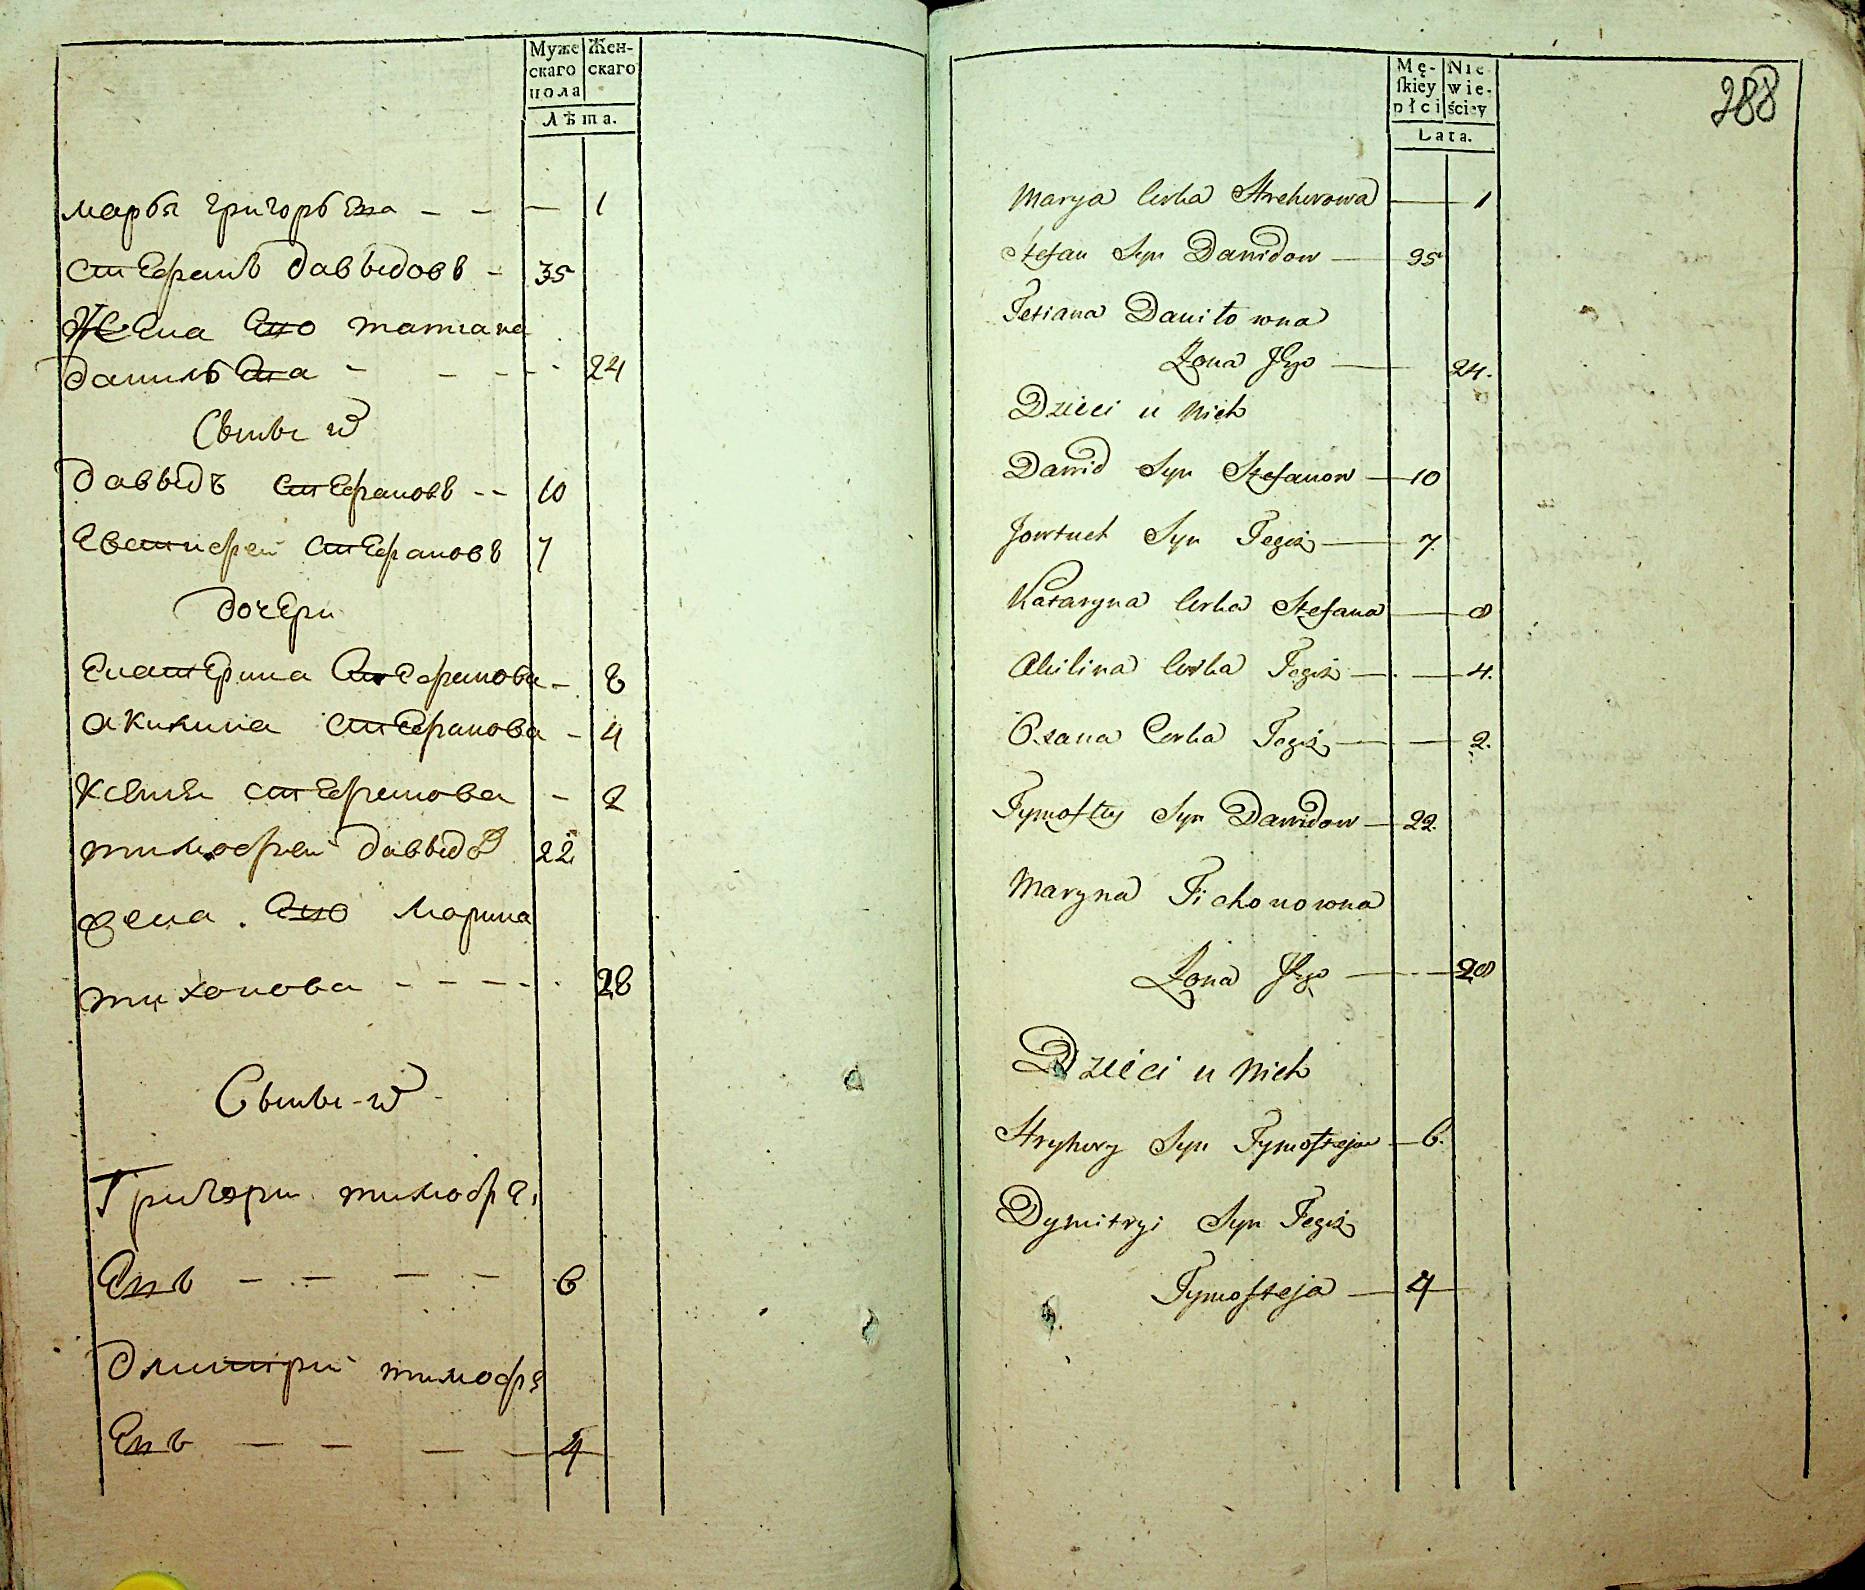 Муже
скаго
пола
Жен-
скаго
Лѣта.
марья григорьева - - — 1
стефанъ давыдовъ - 35
жена Его татиана
данильева - - - - 24
Сыны ѿ
давыдъ стефановъ -- 10
Евстифей стефановъ 7
дочери
Екатерина Стефанова - 8
акилина стефанова - 4
Ксения стефанова - 2
тимофей давыдов 22
жена Его Марина
тихонова - - - - - 28
Сыны - ѿ -
Григори тимофе,
Евъ — — — — 6
дмитрий тимофе
Евъ — — — — 4
Mę-
skiey
płci
Nie
wie-
ściey
Lata.
288
Marya Corka Strehorowa — 1
Stefan Syn Dawidow — 35
Tetiana Daniłowna
Żona Jego — 24.
Dzieci u Nich
Dawid Syn Stefanow — 10
Jowtuch Syn Tegoż — 7.
Kataryna Corka Stefana — 8
Akilina Corka Tegoż — . — 4.
Oxana Corka Tegoż — — 2.
Tymoftey Syn Dawidow — 22.
Maryna Tichonowna
Żona Jego — . — 28
Dzieci u Nich
Hryhory Syn Tymofteja — 6.
Dymitryi Syn Tegoż
Tymofteja — 4